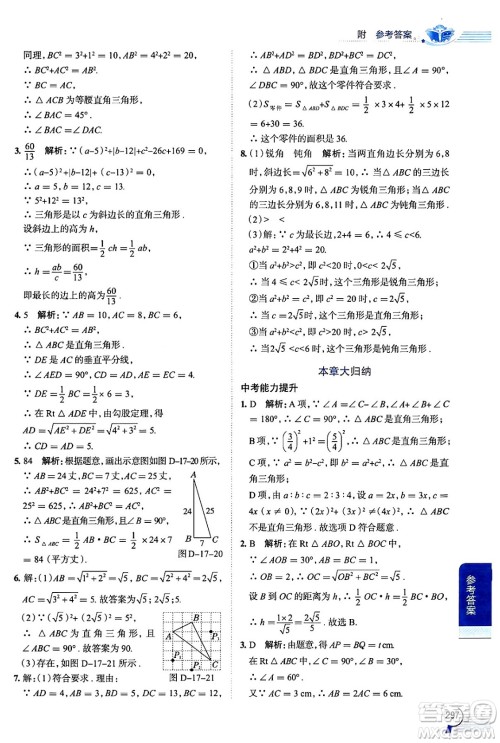 附 参考答案
同理，BC²=5，AC²=10，
∴ AB²+BC²=AC²，AB=BC，
∴ △ABC 为等腰直角三角形，
∴ ∠BAC=45°．
∴ ∠BAC=∠DAC．
3. 60/13 解析：∵(a-5)²+|b-12|+c²-26c+169=0，
∴ (a-5)²+|b-12|+(c-13)²=0，
∴ a=5，b=12，c=13，
∵ 5²+12²=13²，
∴ 三角形是以 c 为斜边的直角三角形．
设斜边上的高为 h，
∵ 三角形的面积=1/2 ch=1/2 ab，
∴ h=ab/c=60/13，
即最长的边上的高为60/13．
4. 5 解析：∵ AB=10，AC=8，BC=6，
∴ BC²+AC²=AB²，
∴ △ABC 是直角三角形，且∠C=90°．
∵ DE 是 AC 的垂直平分线，
∴ AE=EC=4，DE∥BC，AD=BD，
∴ DE=1/2BC=3．
在 Rt△ADE 中，由勾股定理，得
AD=√(AE²+DE²)=√(4²+3²)=5．
5. 84 解析：根据题意，画出示意图如图 D-17-20．
∵ AB=24 丈，BC=7 丈，AC=25 丈，
∴ AB²+BC²=24²+7²=625，AC²=25²=625，
∴ AB²+BC²=AC²，
∴ △ABC 是直角三角形，
∴ S△ABC=1/2AB·BC=1/2×24×7
=84（平方丈）．
A
24
25
B
7
C
图 D-17-20
6. 解：(1)AB=√(1²+2²)=√5，AC=
√(3²+4²)=5．故答案为√5，5．
(2)∵ (√5)²+(2√5)²=5²，
∴ △ABC 为直角三角形，故
答案为直角三角形．
(3)存在，如图 D-17-21．
图 D-17-21
7. 解：(1)∵ ∠B=90°，
∵ DA=13，CD=12，
∴ AD²=AC²+CD²，
∴ △ACD 是直角三角形，∠ACD=90°，
(2)S零件=S△ABD+S△DBC=1/2×3×4+1/2×5×12
=36．∴ 这个零件的面积为 36．
8. (1)锐角 钝角 解析：当两直角边长为 6，8
时，斜边长为√(6²+8²)=10，∴ 当△ABC 三边
长分别为 6，8，9 时，△ABC 为锐角三角形；当
△ABC 三边长分别为 6，8，11 时，△ABC 为钝
角三角形．
(2)> <
(3)解：∵ c 为最长边，∴ 4≤c<6．
a²+b²=2²+4²=20．
①当 a²+b²>c²，即 c²<20，4≤c<2√5 时，这个
三角形是锐角三角形；
②当 a²+b²=c²，即 c²=20，c=2√5 时，这个三
角形是直角三角形；
③当 a²+b²<c²，即 c²>20，2√5<c<6 时，这个
三角形是钝角三角形．
本章大归纳
中考能力提升
1. D 解析：A 项，∵ ∠A=∠C-∠B，∴ ∠A+
∠B=∠C=90°，∴ △ABC 是直角三角形；
B 项，∵ (3/4)²+1²=(5/4)²，∴ △ABC 是直角
三角形；C 项，∵ a²=b²-c²，∴ a²+c²=b²，
∴ △ABC 是直角三角形；
D 项，由 a∶b∶c=2∶3∶4，可设 a=2x，b=3x，c=
4x（x≠0），∵ (2x)²+(3x)²≠(4x)²，∴ △ABC
不是直角三角形．故本选项正确．
2. B 解析：∵ ∠AOB=90°，
∴ OB⊥AC，∴ BC=√(OB²+OC²)=√5．
设 B 到 OC 的距离为 h，∴ 1/2BC·h=1/2OC·BO，
∴ h=(1×2)/√5=2√5/5．故选 B．
9. D 解析：由题意，得 AP=BQ=√1=1．
在 Rt△ABQ 中，∵ ∠ABQ=90°，
∴ AQ=√(AB²+BQ²)=√(2²+1²)=√5，
参考答案
297